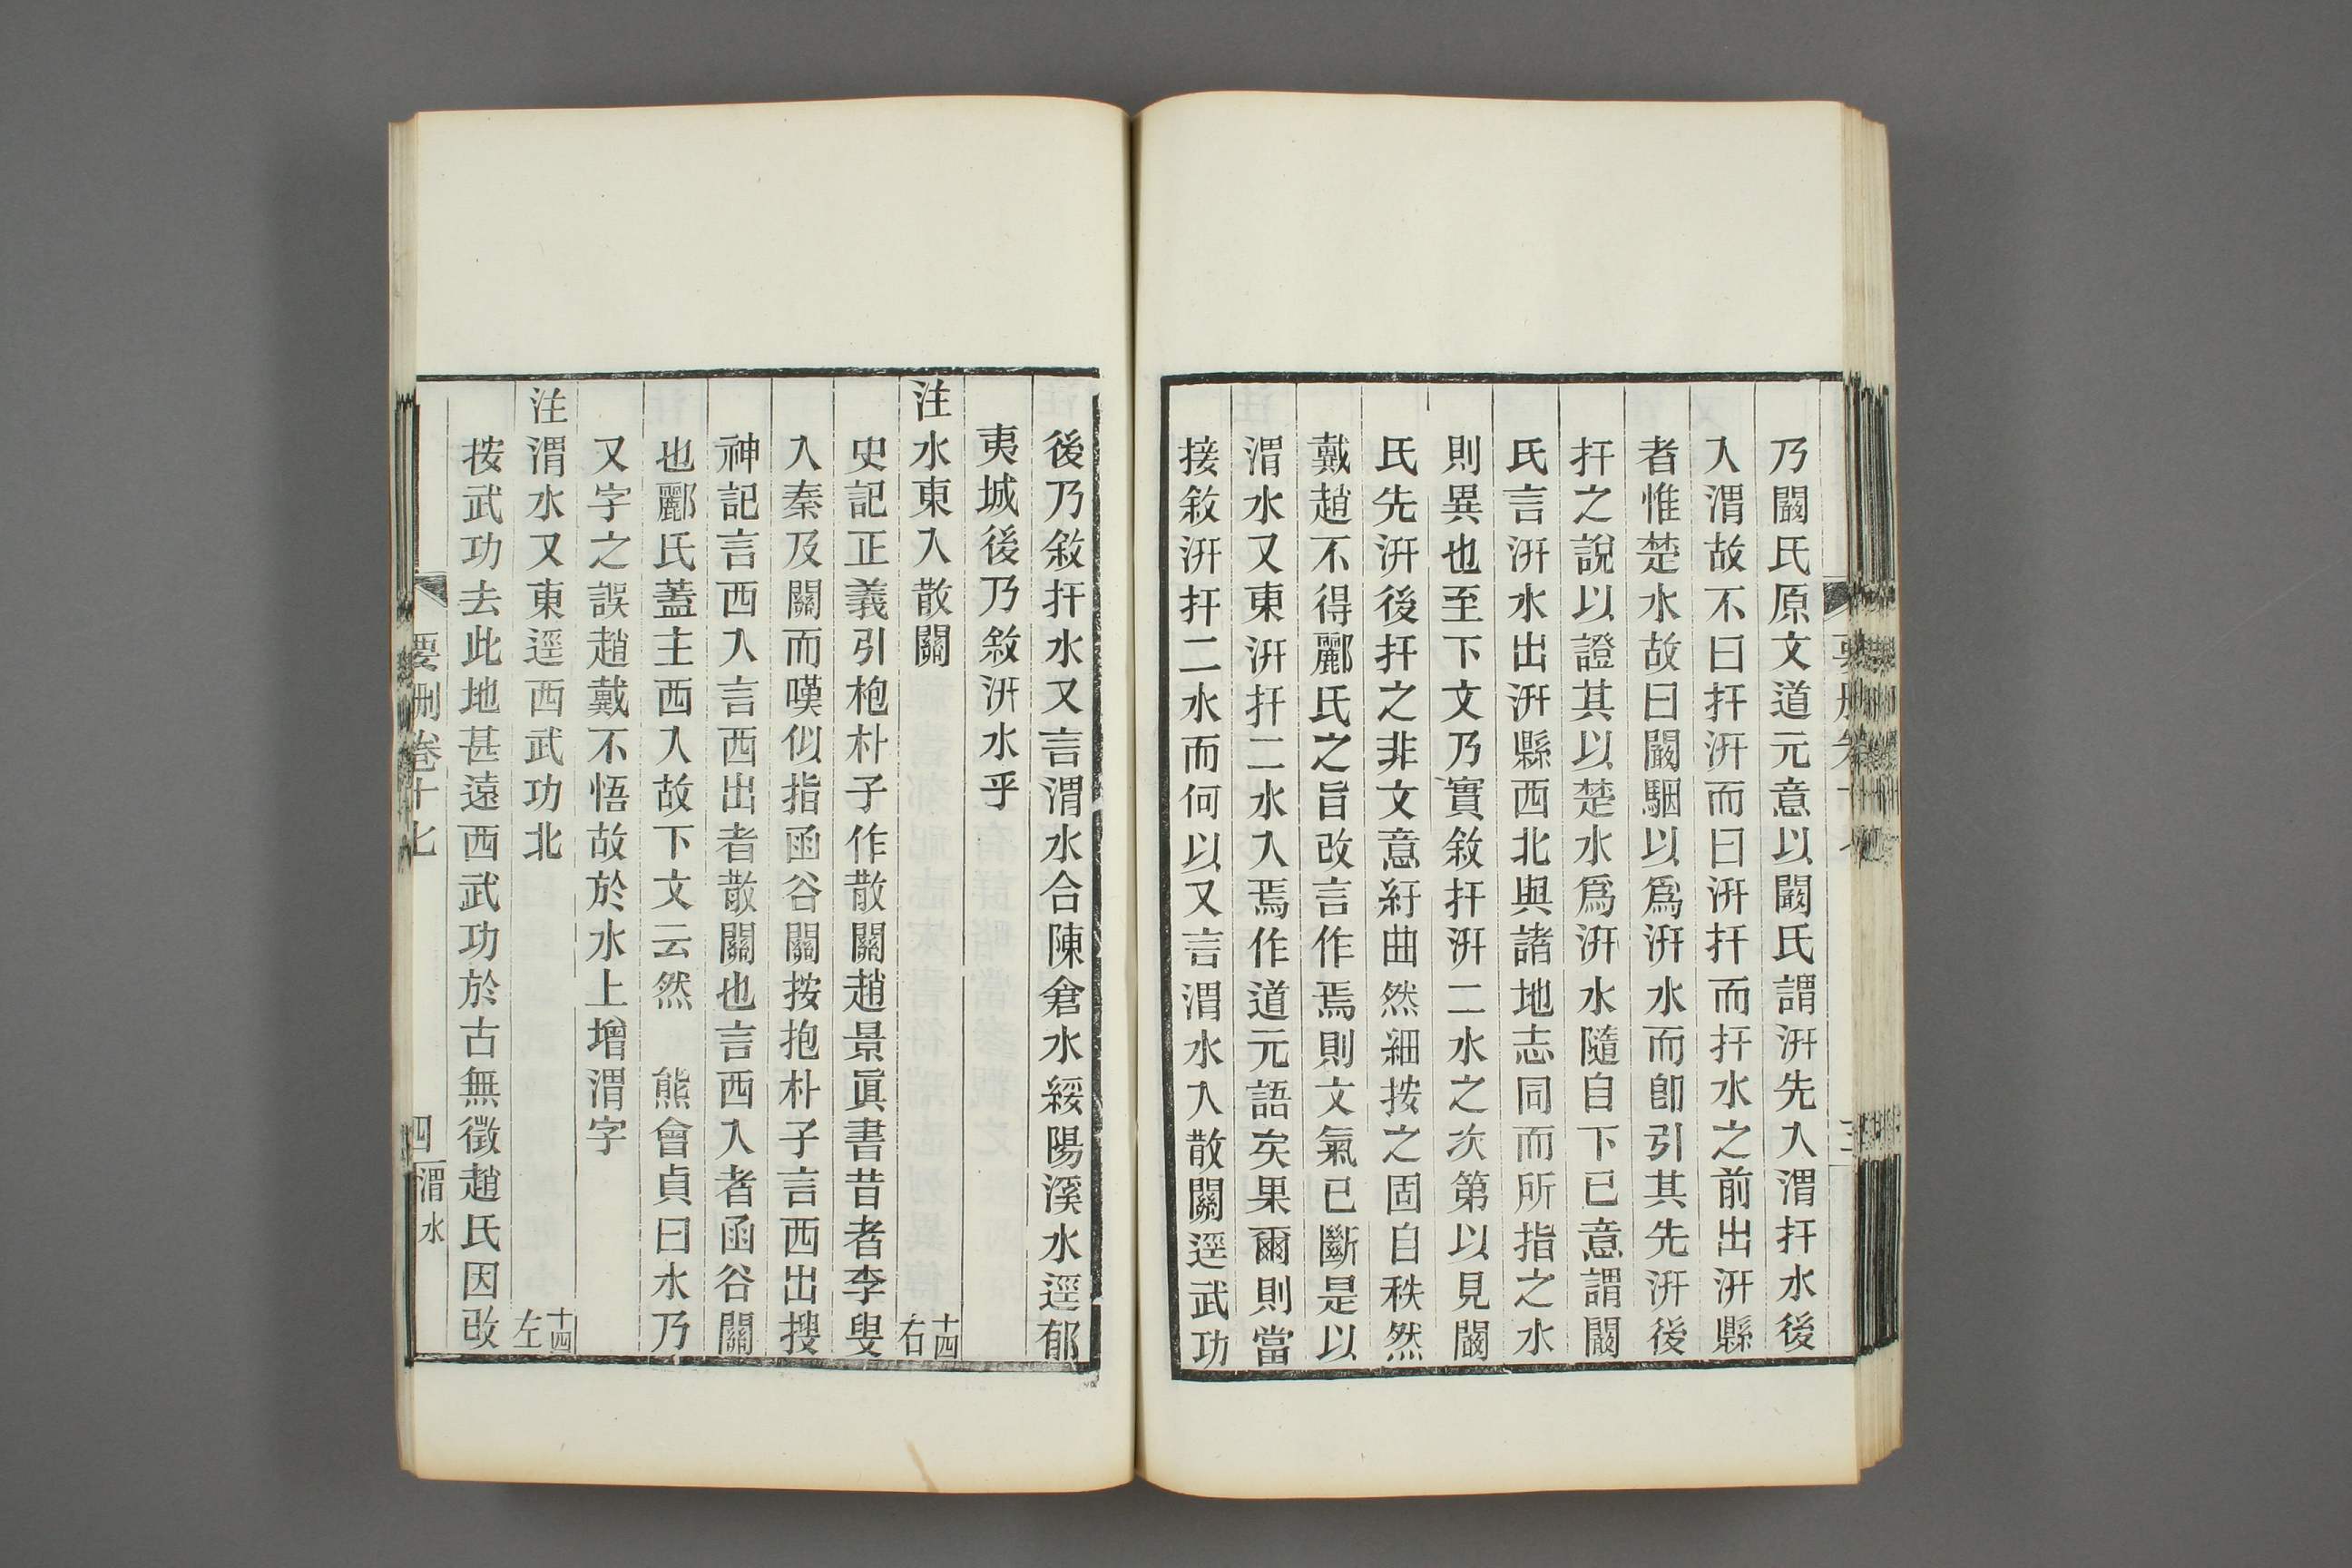 乃闞氏原文道元意以闞氏謂汧先入渭扞水後
入渭故不曰扞汧而曰汧扞而扞水之前出汧縣
者惟楚水故曰闞駰以爲汧水而卽引其先汧後
扞之說以證其以楚水爲汧水隨自下已意謂闞
氏言汧水出汧縣西北與諸地志同而所指之水
則異也至下文乃實敘扞汧二水之次第以見闞
氏先汧後扞之非文意紆曲然細按之固自秩然
戴趙不得酈氏之旨改言作焉則文氣已斷是以
渭水又東汧扞二水入焉作道元語矣果爾則當
接敘汧扞二水而何以又言渭水入散關逕武功
後乃敘扞水又言渭水合陳倉水綏陽溪水逕郁
夷城後乃敘汧水乎
注水東入散關 十四右
史記正義引枹朴子作散關趙景眞書昔者李叟
入秦及關而嘆似指函谷關按抱朴子言西出搜
神記言西入言西出者散關也言西入者函谷關
也酈氏蓋主西入故下文云然 熊會貞曰水乃
又字之誤趙戴不悟故於水上增渭字
注渭水又東逕西武功北 十四左
按武功去此地甚遠西武功於古無徵趙氏因改
要刪卷十七 四 渭水